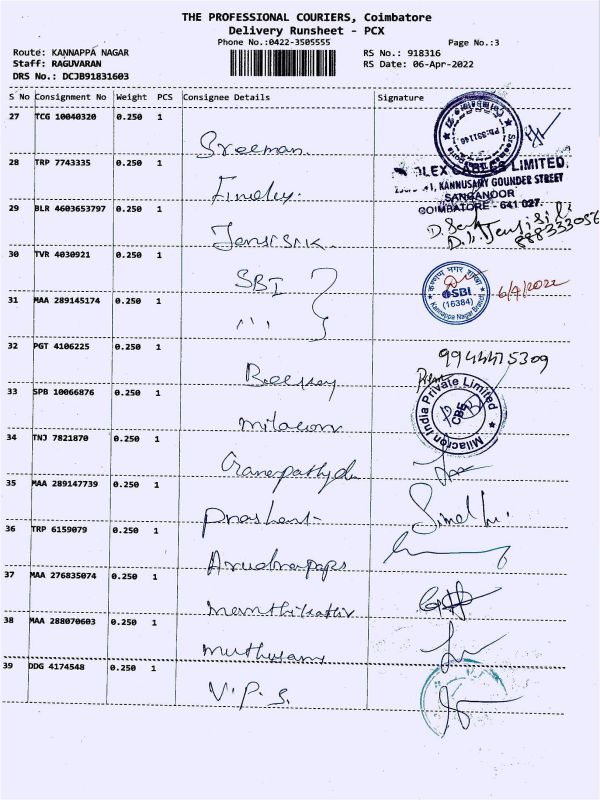 THE PROFESSIONAL COURIERS, Coimbatore
Delivery Runsheet - PCX
Phone No.:0422-3505555
Page No.:3
Route: KANNAPPA NAGAR
RS No.: 918316
Staff: RAGUVARAN
RS Date: 06-Apr-2022
DRS No.: DCJB91831603
S No Consignment No Weight PCS Consignee Details Signature
27 TCG 10040320 0.250 1
Sreeman.
28 TRP 7743335 0.250 1
CABLES LIMITED.
KANNUSAMY GOUNDER STREET
SANGANOOR
COIMBATORE - 641 027.
29 BLR 4603653797 0.250 1
30 TVR 4030921 0.250 1
SBI
कण्णप्प नगर शाखा
SBI
(16384)
Kannappa Nagar Branch
6/4/2022
31 MAA 289145174 0.250 1
32 PGT 4106225 0.250 1
9944475309
33 SPB 10066876 0.250 1
Milacron
Milacron India Private Limited
CBE
34 TNJ 7821870 0.250 1
Ganapathy
35 MAA 289147739 0.250 1
Prashant
36 TRP 6159079 0.250 1
37 MAA 276835074 0.250 1
38 MAA 288070603 0.250 1
Muthusamy
39 DDG 4174548 0.250 1
V.P.S.